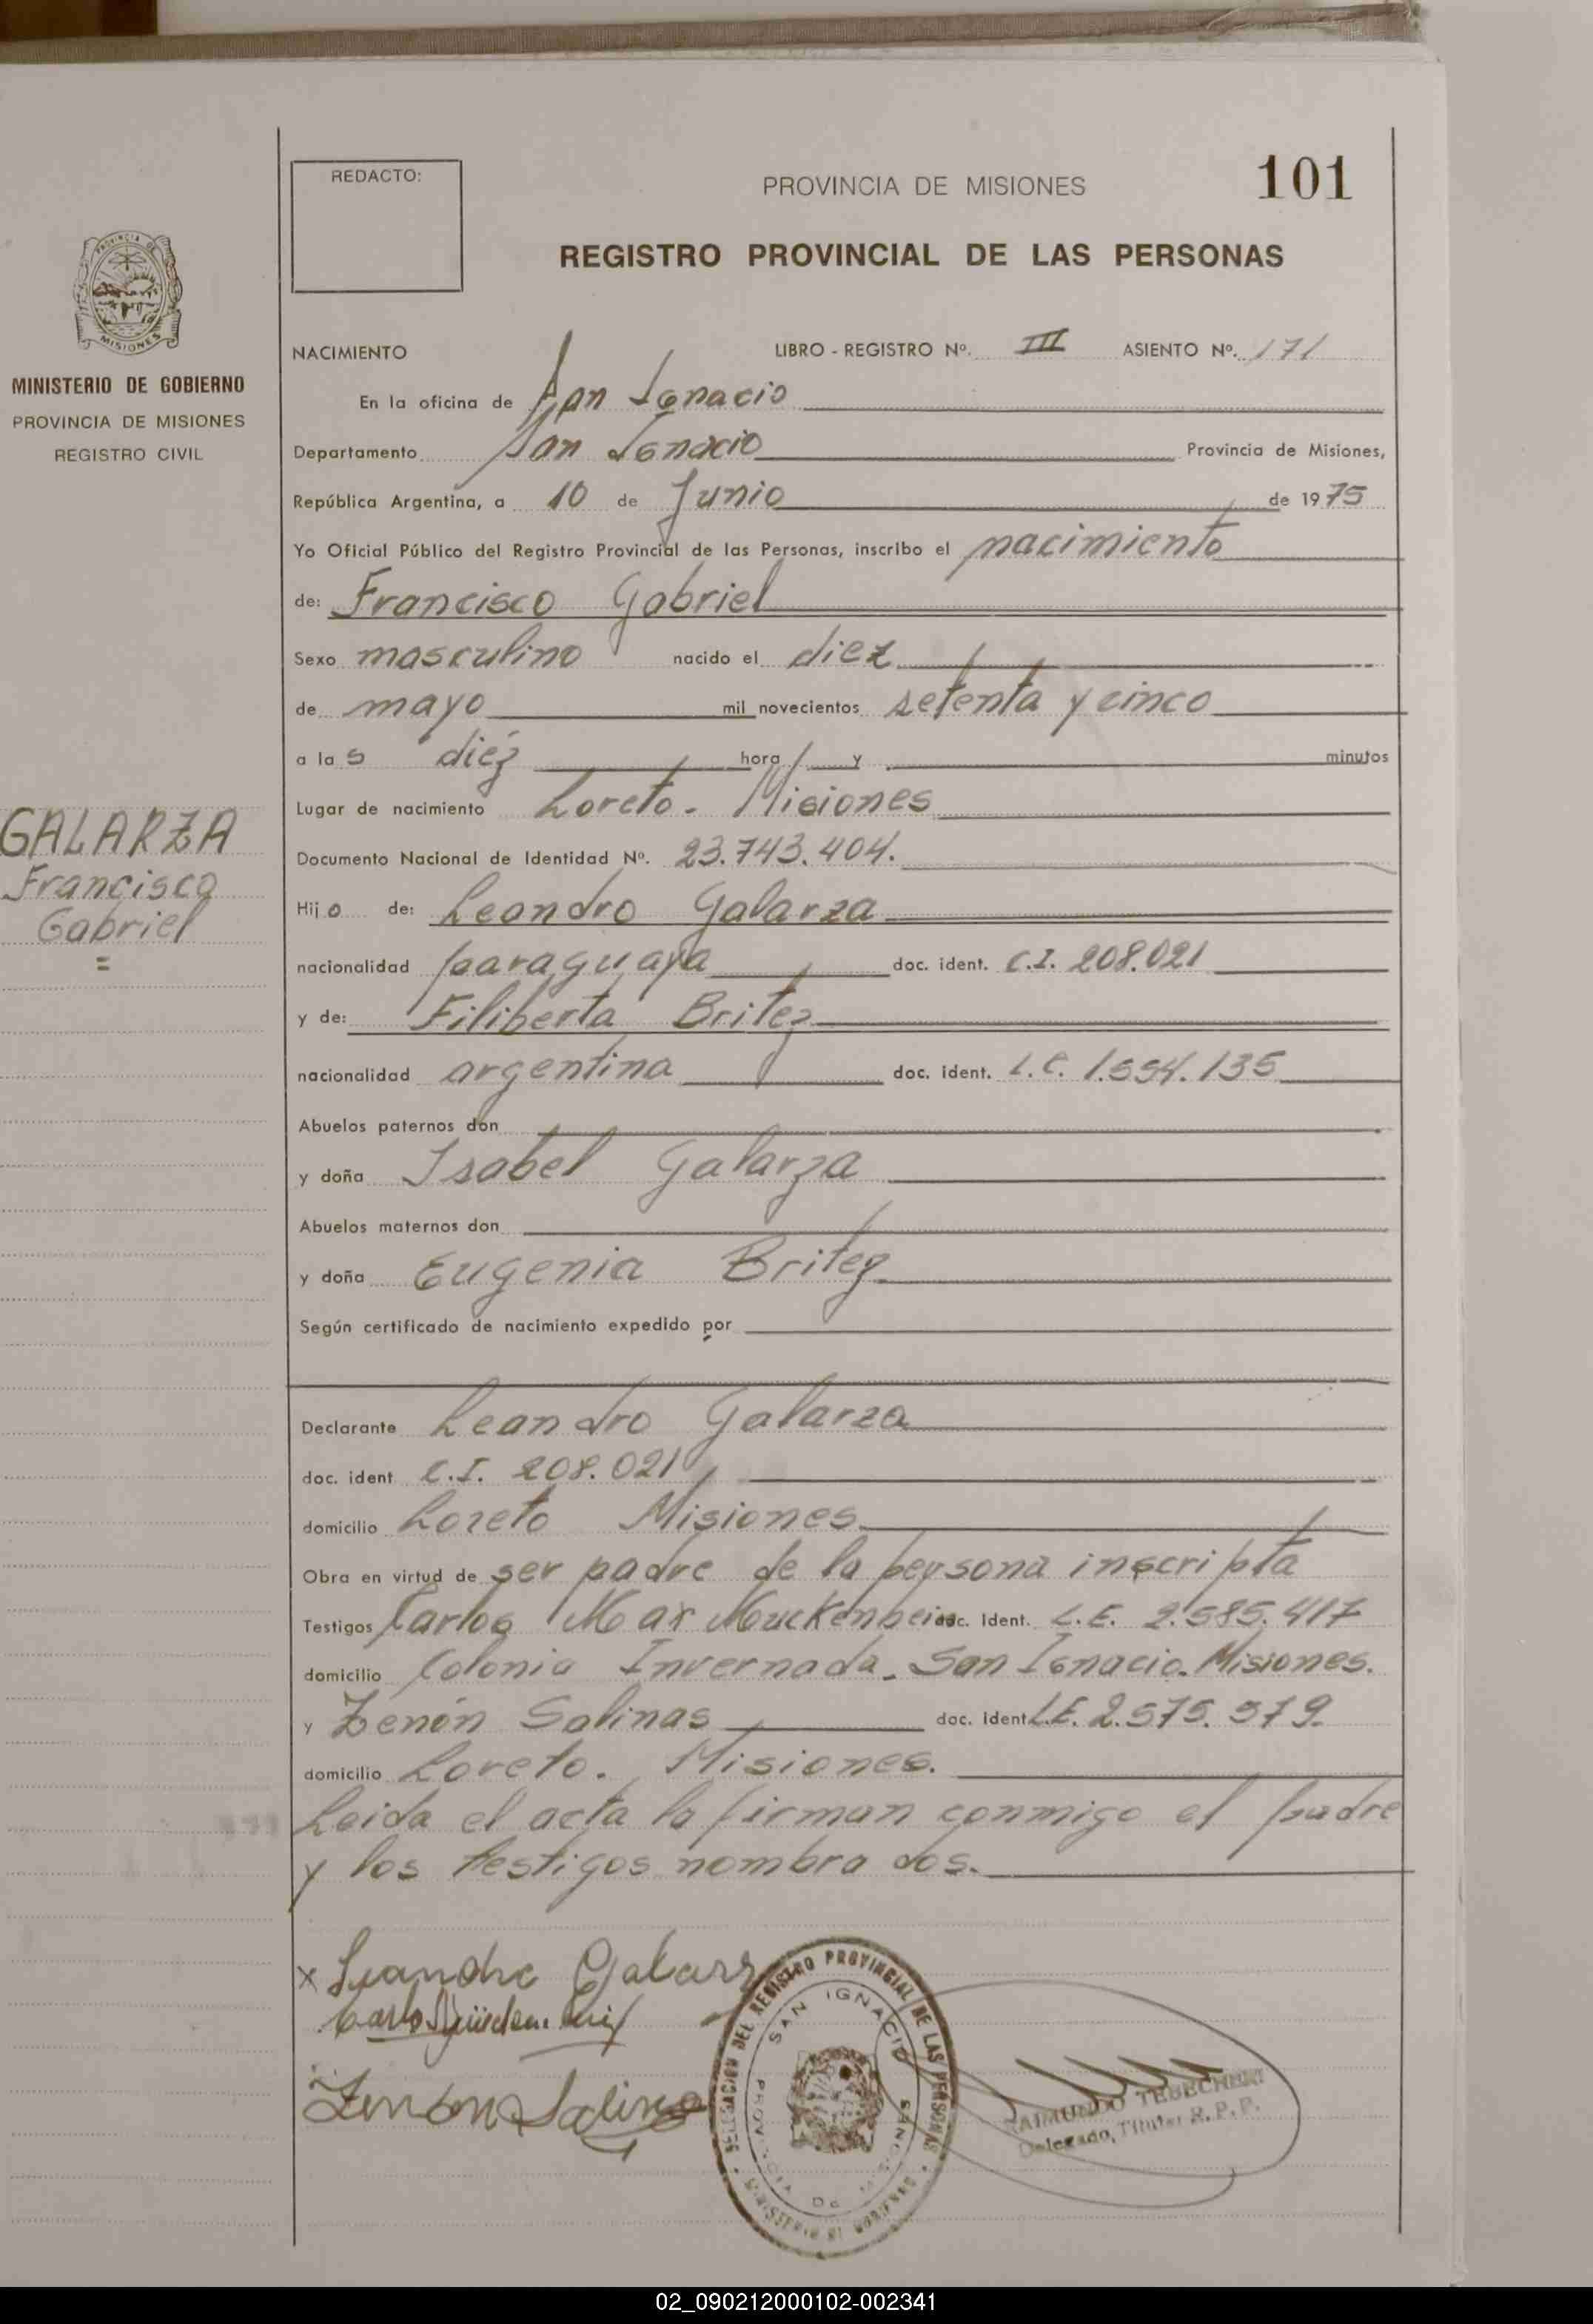 REDACTO:
PROVINCIA DE MISIONES
101
REGISTRO PROVINCIAL DE LAS PERSONAS
PROVINCIA DE
MISIONES
MINISTERIO DE GOBIERNO
PROVINCIA DE MISIONES
REGISTRO CIVIL
GALARZA
Francisco
Gabriel
=
NACIMIENTO LIBRO - REGISTRO Nº. III ASIENTO Nº. 171
En la oficina de San Ignacio
Departamento San Ignacio Provincia de Misiones,
República Argentina, a 10 de Junio de 1975
Yo Oficial Público del Registro Provincial de las Personas, inscribo el nacimiento
de: Francisco Gabriel
Sexo masculino nacido el diez
de mayo mil novecientos setenta y cinco
a las diéz hora / y minutos
Lugar de nacimiento Loreto - Misiones
Documento Nacional de Identidad Nº. 23.743.404.
Hijo de: Leandro Galarza
nacionalidad paraguaya doc. ident. C.I. 208.021
y de: Filiberta Britez
nacionalidad argentina doc. ident. L.C. 1.554.135
Abuelos paternos don
y doña Isabel Galarza
Abuelos maternos don
y doña Eugenia Britez
Según certificado de nacimiento expedido por
Declarante Leandro Galarza
doc. ident C.I. 208.021
domicilio Loreto Misiones
Obra en virtud de ser padre de la persona inscripta
Testigos Carlos Max doc. Ident. L.E. 2.585.417
domicilio Colonia Invernada - San Ignacio. Misiones.
y Zenón Salinas doc. ident L.E. 2.575.579.
domicilio Loreto. Misiones.
Leida el acta la firman conmigo el padre
y los testigos nombrados.
x Leandro Galarz
Zenon Salinas
DELEGACION DEL REGISTRO PROVINCIAL DE LAS PERSONAS
SAN IGNACIO
RAIMUNDO TEBECHERI
Delegado, Titular R. P. P.
02_090212000102-002341